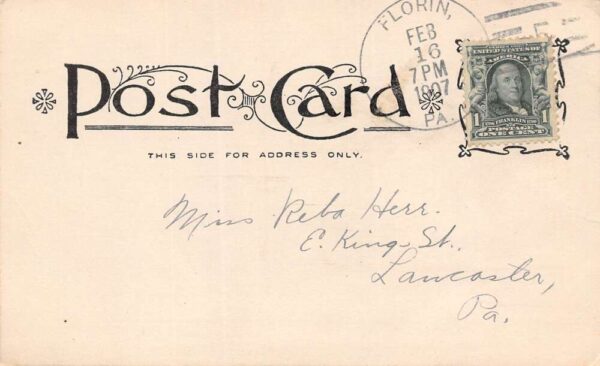 FLORIN,
FEB
16
7 PM
1907
PA.
SERIES 1902
UNITED STATES OF
AMERICA
1 FRANKLIN 1
POSTAGE
ONE CENT
Post Card
THIS SIDE FOR ADDRESS ONLY.
Miss Reba Herr.
E. King St.,
Lancaster,
Pa.